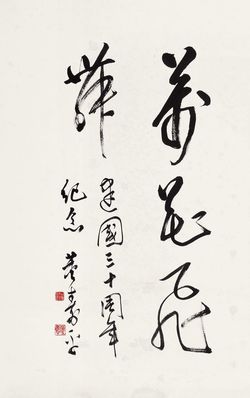 萬花飛
舞
建國三十周年
紀念 董壽平